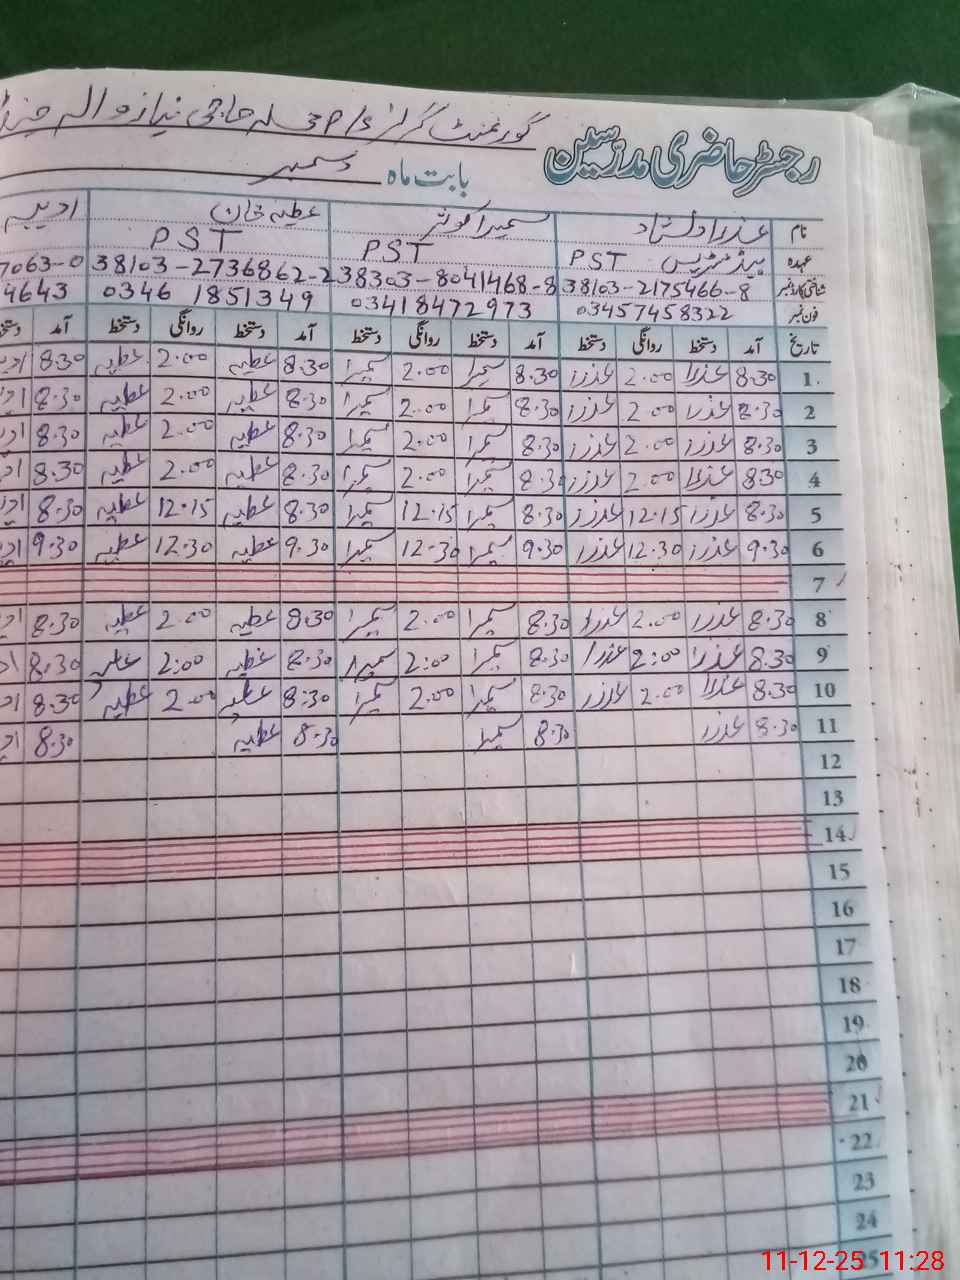 رجسٹر حاضری مدرسین گورنمنٹ گرلز P/S محلہ حاجی نیازو
بابت ماہ دسمبر
نام عذرا دلشاد سمیرا کوثر عطیہ خان ادیبہ
عہدہ ہیڈ مسٹریس PST PST PST
شناختی کارڈ نمبر 38103-2175466-8 38303-8041468-8 38103-2736862-2 7063-0
فون نمبر 03457458322 03418472973 0346 1851349 4643
تاریخ آمد دستخط روانگی دستخط آمد دستخط روانگی دستخط آمد دستخط روانگی دستخط آمد
1 8.30 عذرا 2.00 عذرا 8.30 سمیرا 2.00 سمیرا 8.30 عطیہ 2.00 عطیہ 8.30
2 8.30 عذرا 2.00 عذرا 8.30 سمیرا 2.00 سمیرا 8.30 عطیہ 2.00 عطیہ 8.30
3 8.30 عذرا 2.00 عذرا 8.30 سمیرا 2.00 سمیرا 8.30 عطیہ 2.00 عطیہ 8.30
4 8.30 عذرا 2.00 عذرا 8.30 سمیرا 2.00 سمیرا 8.30 عطیہ 2.00 عطیہ 8.30
5 8.30 عذرا 12.15 عذرا 8.30 سمیرا 12.15 سمیرا 8.30 عطیہ 12.15 عطیہ 8.30
6 9.30 عذرا 12.30 عذرا 9.30 سمیرا 12.30 سمیرا 9.30 عطیہ 12.30 عطیہ 9.30
7
8 8.30 عذرا 2.00 عذرا 8.30 سمیرا 2.00 سمیرا 8.30 عطیہ 2.00 عطیہ 8.30
9 8.30 عذرا 2:00 عذرا 8.30 سمیرا 2:00 سمیرا 8.30 عطیہ 2:00 عطیہ 8.30
10 8.30 عذرا 2.00 عذرا 8.30 سمیرا 2.00 سمیرا 8:30 عطیہ 2.00 عطیہ 8.30
11 8.30 عذرا 8.30 سمیرا 8.30 عطیہ 8.30
12
13
14
15
16
17
18
19
20
21
22
23
24
25
11-12-25 11:28